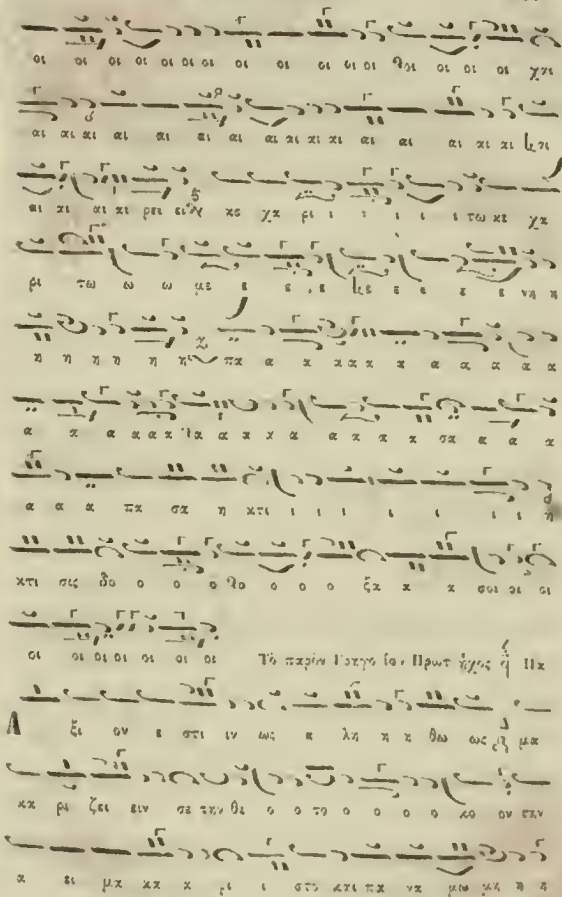 οι οι οι οι οι οι οι οι οι οι οι οι οι οι οι οι χαι
αι αι αι αι αι αι αι αι αι αι αι αι αι αι αι αι και
αι αι αι αι ρει ει κε χα ρι ι ι ι ι ι τω κε χα
ρι τω ω ω με ε ε ε ε ε ε ε νη η
η η η η η η πα α α α α α α α α α α
α α α α α α α α α α α α α α σα α α α
α α α πα σα η κτι ι ι ι ι ι ι ι η
κτι σις δο ο ο ο ο ο ο ο ξα α α σοι οι οι
οι οι οι οι οι οι οι Τὸ παρὸν Πρωτ ἦχος Πα
Α ξι ον ε στι ιν ως α λη η η θω ως μα
κα ρι ζει ειν σε την θε ο ο το ο ο ο ο κο ον την
α ει μα κα α ρι ι στο και πα να μω μη η η